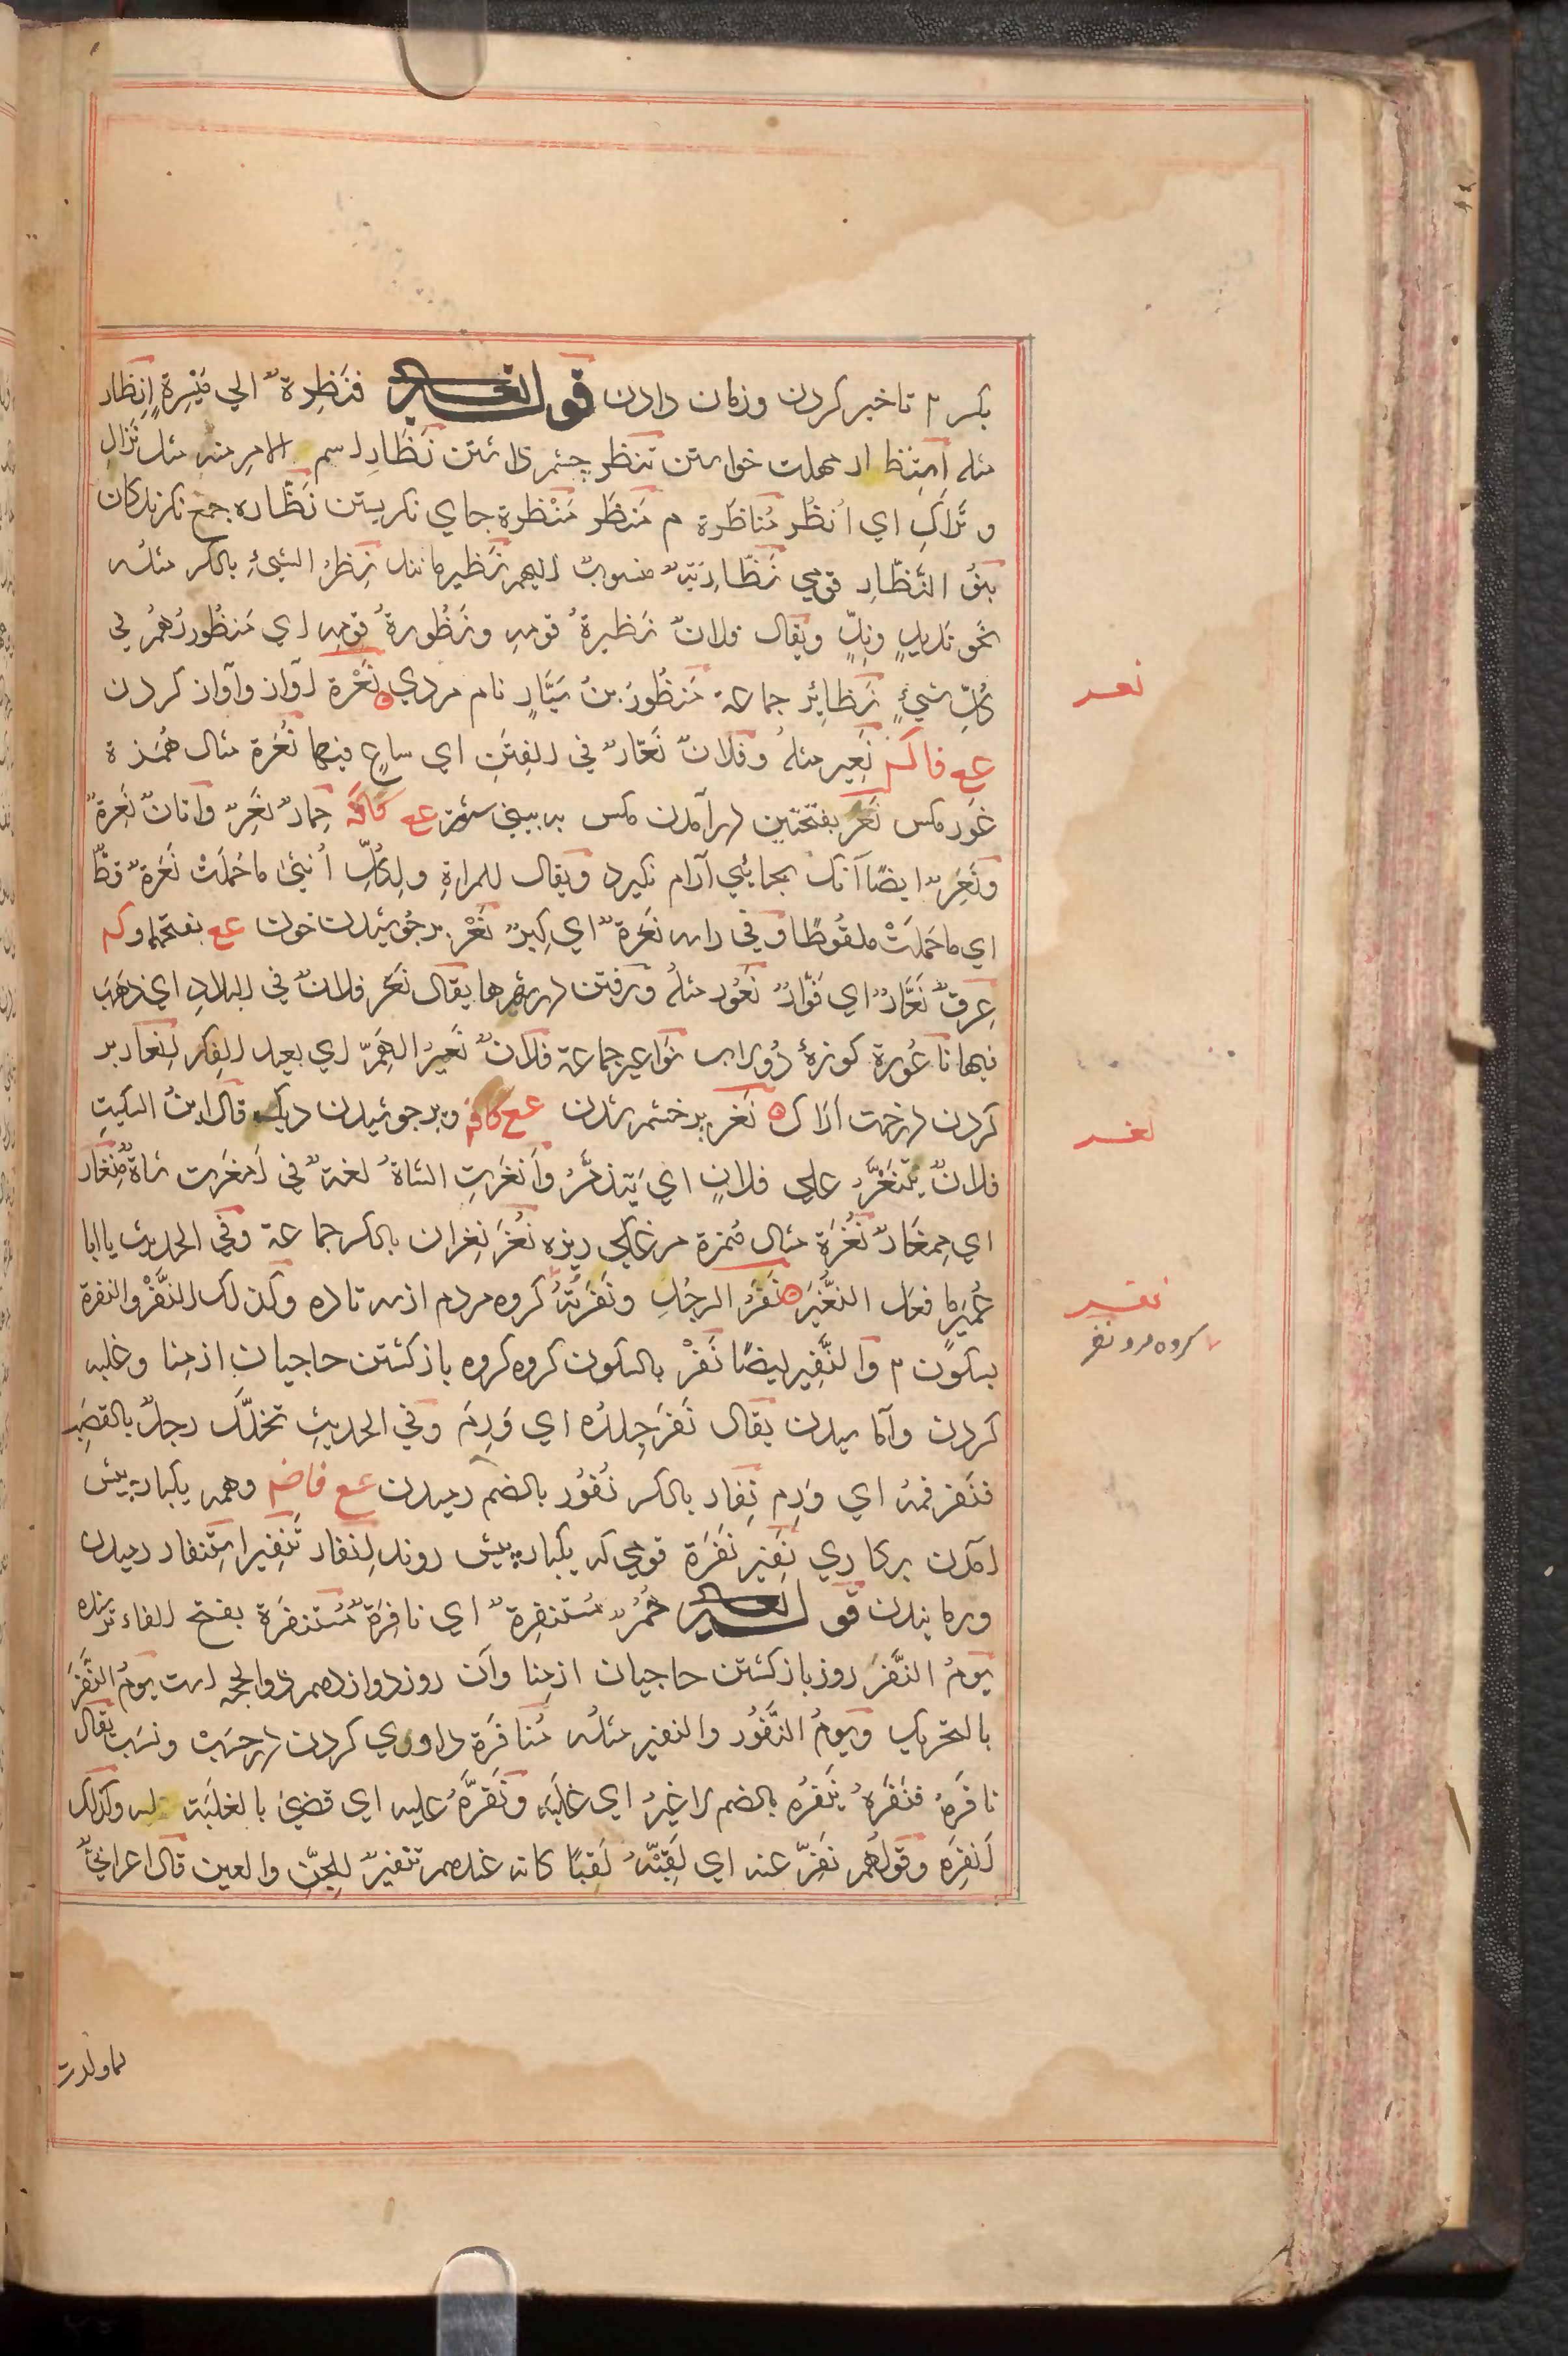 بکسر م تاخیر کردن وزمان دادن قوله تعالی فنَظِرةٌ الي مَیْسِرةٍ اِنظار
مثله اِستِنظار مهلت خواستن تنظر چشم داشتن نَظَارِ اسم الامر منه مثل نَزالِ
و تَراکِ اي اُنظُر مُناظَرة م مَنظَر مَنْظرة جاي نکریستن نَظّاره جمع نکرندکان
بنُو النَّظّارِ قومي نَظّارِیّةٌ منسوبٌ الیهم نَظیر مانند نِظرُ الشيءِ بالکسر مثلُه
نحو نَدیدٍ ونِدٍّ ویقال فلانٌ نَظیرةُ قومِهِ ونَظُورةُ قومِهِ اي مَنظُورُهُم في
کُلِّ شيءٍ نَظائِر جماعة مَنظُورُ بنُ سَیّارٍ نام مردي نَعْرة آواز وآواز کردن
عع فاکسر نَعِیر مثلهُ وفلانٌ نَعّارٌ في الفِتَنِ اي ساعٍ فیها نُعَرة مثال هُمَزة
خَر مکس نَعَر بفتحتین درآمدن مکس بر بیني ستور عع کافة حِمارٌ نَعِرٌ واتانٌ نَعِرةٌ
ونَعِرٌ ایضًا آنک بجائي آرام نکیرد ویقال للمراةِ ولِکُلِّ اُنثی ما حَمَلَتْ نُعَرةٌ قطُّ
اي ما حَمَلَتْ ملقُوطًا وفي راسه نُعَرةٌ اي کِبرٌ نَعْر برجوشیدن خون عع بفتحهما وکسر
عِرقٌ نَعّارٌ اي فَوّارٌ نَعُور مثلُه ورفتن در شهرها یقال نَعَر فلانٌ في البلادِ اي ذهَبَ
فیها ناعُورة کوزهٔ دُولاب نَواعیر جماعة فلانٌ نَعیرُ الهَمِّ اي بعید الفِکر اِنعار بر
کردن درخت اَراک نَغَر بر خشم شدن عع کافة وبرجوشیدن دیک قال ابنُ السکیتِ
فلانٌ یَتنَغَّرُ علي فلانٍ اي یَتذمَّرُ واَنغَرَتِ الشاةُ لغةٌ في اَمغَرت شاةٌ مِنغار
اي مِمغارٌ نُغَرة مثال هُمزة مرغکي ریزه نُغَر نِغران بالکسر جماعة وفي الحدیث یا ابا
عُمیَر ما فعل النُّغَیر نَفَرُ الرجُلِ ونَفرَتُهُ کروه مردم از سه تا ده وکذلک النَّفْرُ والنفرة
بسکون م والنَّفِیر ایضًا نَفْر بالسکون کروه کروه باز کشتن حاجیان از مِنا وغلبه
کردن وآماسیدن یقال نَفَر جِلدُه اي وَرِمَ وفي الحدیثِ تخلَّلَ رجلٌ بالقصَب
فنَفَر فمه اي وَرِم نِفار بالکسر نُفُور بالضم رمیدن عع فاضم وهمه یکبار پیش
آمدن برکاري نَفِیر نَفَرَة قومي که یکبار پیش روند اِنفار تَنفِیر اِستِنفار رمیدن
ورمانیدن قوله تعالی حُمُرٌ مُستنفِرةٌ اي نافِرَةٌ مُستنفَرَة بفتح الفاء ترسنده
یَومُ النَّفرَ روز باز کشتن حاجیان از مِنا وآن روز دوازدهم ذوالحجه است یومُ النَّفَرَ
بالتحریک ویومُ النُّفُور والنفیر مثلُه مُنافَرَة داوري کردن در حَسَب ونسَب یقال
نافَرهُ فنَفَرهُ یَنفُرُه بالضم لا غیرُ اي غلَبَه ونَفَّرهُ علیه اي قضيَ بالغلبَة له وکذلک
اَنفَرَه وقولُهُم نَفِّر عنه اي لَقِّبْهُ لَقبًا کانه عندهم تنفیرٌ للجِنّ والعین قال اعرابيٌّ
نعر
نغر
نفر
کروه مرد ونفر
لما ولدت